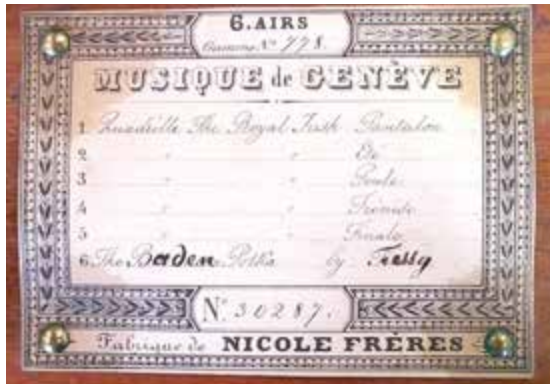 6. AIRS
Gamme Nº 778.
MUSIQUE de GENÈVE
1 Quadrille The Royal Irish Pantalon
2 " " Eté
3 " " Poule
4 " " Trénise
5 " " Finale
6. The Baden Polka by
Nº 30287.
Fabrique de NICOLE FRÈRES